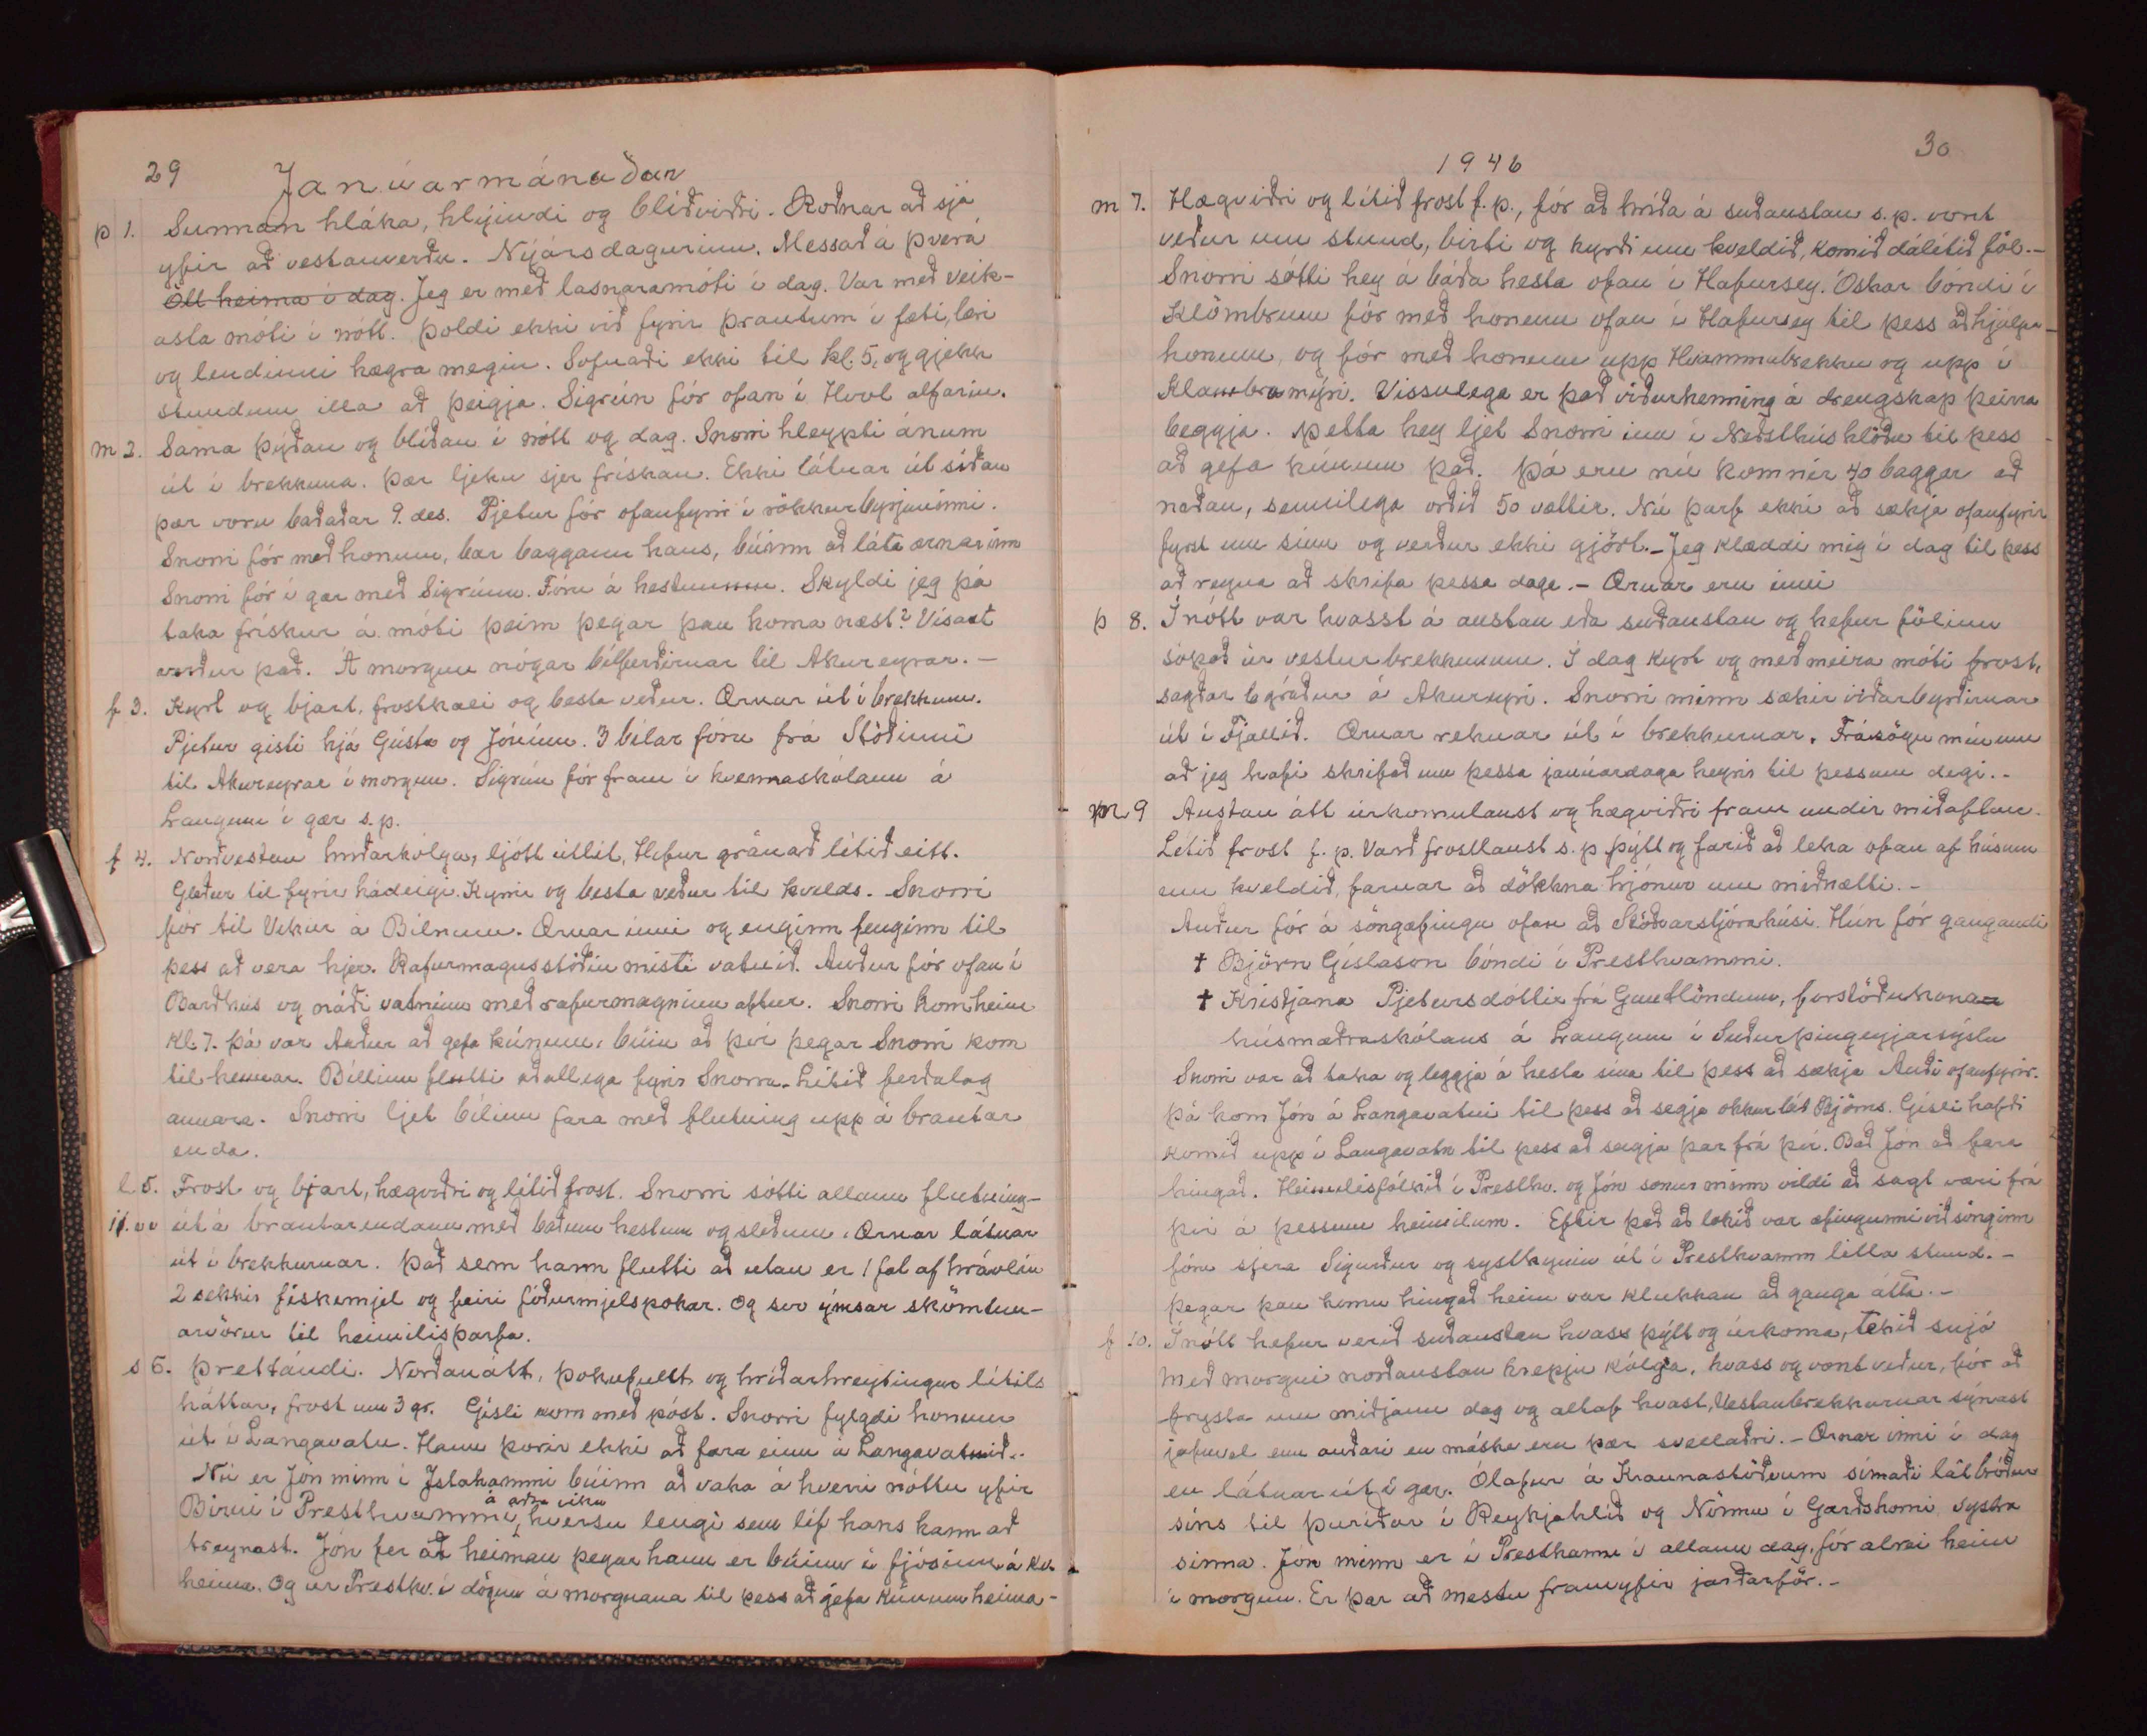 29 Janúarmánaðar
þ 1. Sunnan hláka, hlýindi og blíðviðri. Roðnar að sjá
yfir að vestanverðu. Nýársdagurinn. Messað á Þverá
Öll heima í dag. Jeg er með lasnaramóti í dag. Var með veik-
asta móti í nótt. Þoldi ekki við fyrir þrautum í fæti, læri
og lendinni hægra megin. Sofnaði ekki til kl. 5, og gjekk
stundum illa að þegja. Sigrún fór ofan í Hvol alfarin.
m 2. Sama þýðan og blíðan í nótt og dag. Snorri hleypti ánum
út í brekkuna. Þær ljeku sjer frískar. Ekki látnar út síðan
þær voru baðaðar 9. des. Pjetur fór ofanfyrir í rökkurbyrjuninni.
Snorri fór með honum, bar baggann hans, búinn að láta ærnar inn
Snorri fór í gær með Sigrúnu. Fóru á hestunum. Skyldi jeg þá
taka frískur á móti þeim þegar þau koma næst? Vísast
verður það. Á morgun nógar bílferðirnar til Akureyrar. -
f 3. Kyrt og bjart, frostkæli og besta veður. Ærnar út í brekkum.
Pjetur gisti hjá Gústa og Jónínu. 3 bílar fóru frá Stöðinni
til Akureyrar í morgun. Sigrún fór fram í kvennaskólann á
Laugum í gær s.p.
f 4. Norðvestan hríðarkólga, ljótt útlit, Hefur gránað lítið eitt.
Glaður til fyrir hádeigi. Kyrrir og besta veður til kvelds. Snorri
fór til Vikur á Bílnum. Ærnar inni og enginn fenginn til
þess að vera hjer. Rafurmagnsstöðin misti vatnið. Auður fór ofan í
Barðhús og náði vatninu með rafurmagninu aftur. Snorri kom heim
Kl. 7. þá var Auður að gefa kúnum, búin að því þegar Snorri kom
til hennar. Bíllinn flutti aðallega fyrir Snorra. Lítið ferðalag
annara. Snorri ljet bílinn fara með flutning upp á brautar
enda.
l 5. Frost og bjart, hægviðri og lítið frost. Snorri sótti allann flutning-
11. vv út á brautarendann með báðum hestum og sleðum. Ærnar látnar
út í brekkurnar. Það sem hann flutti að utan er 1 fat af hrálý
2 sekkir fiskimjel og fleiri fóðurmjelspokar. Og svo ýmsar skömtun-
arvörur til heimilisþarfa.
s 6. Þrettándi. Norðanátt, þokufullt og hríðarhreytingur lítils
háttar, frost um 3 gr. Gísli kom með póst. Snorri fylgdi honum
út í Langavatn. Hann þorir ekki að fara einn á Langavatnið.
Nú er Jón minn í Ystahvammi búinn að vaka á hverri nóttu yfir
Birni í Presthvammi, á aðra viku hversu lengi sem líf hans kann að
treynast. Jón fer að heiman þegar hann er búinn í fjósinu á kv.
heima. Og úr Presthv. í dögun á morgnana til þess að gefa kúnum heima-
30
1946
m 7. Hægviðri og lítið frost f.p., fór að hríða á suðaustan s.p. vont
veður um stund, birti og kyrði um kveldið, komið dálítið föl. -
Snorri sótti hey á báða hesta ofan í Hafursey. Óskar bóndi í
Klömbrum fór með honum ofan í Hafursey til þess að hjálpa -
honum, og fór með honum upp Hvammabrekku og upp í
Klambramýri. Vissulega er það viðurkenning á drengskap þeirra
beggja. Þetta hey ljet Snorri inn í Neðsthúshlöðu til þess
að gefa kúnum það. Þá eru nú komnir 40 baggar að
neðan, sennilega orðið 50 vættir. Nú þarf ekki að sækja ofanfyrir
fyrst um sinn og verður ekki gjört. - Jeg klæddi mig í dag til þess
að reyna að skrifa þessa daga. - Ærnar eru inni
þ 8. Í nótt var hvasst á austan eða suðaustan og hefur fölinu
sópað úr vesturbrekkunum. Í dag kyrt og með meira móti frost,
sagðar 6 gráður á Akureyri. Snorri minn sækir viðarbyrðirnar
út í Fjallið. Ærnar reknar út í brekkurnar. Frásögn mínum
að jeg hafi skrifað um þessa janúardaga heyrir til þessum degi. -
m 9 Austan átt úrkomulaust og hægviðri fram undir miðaftan.
Lítið frost f.p. Varð frostlaust s.p þýtt og farið að leka ofan af húsum
um kveldið, farnar að dökkna hrjónur um miðnætti. -
Auður fór á söngæfingu ofan að Stöðvarstjórahúsi. Hún fór gangandi
† Björn Gíslason bóndi í Presthvammi.
† Kristjana Pjetursdóttir frá Gautlöndum, forstöðukona
húsmæðraskólans á Laugum í Suðurþingeyjarsýslu
Snorri var að taka og leggja á hesta sína til þess að sækja Auði ofanfyrir.
Þá kom Jón á Langavatni til þess að segja okkur lát Björns. Gísli hafði
komið upp í Langavatn til þess að segja þar frá því. Bað Jón að fara
hingað. Heimilisfólkið í Presthv. og Jón sonur minn vildi að sagt væri frá
því á þessum heimilum. Eftir það að lokið var æfingunni við sönginn
fóru sjera Sigurður og systkynin út í Presthvamm litla stund. -
Þegar þau komu hingað heim var klukkan að ganga átta. -
f 10. Í nótt hefur verið suðaustan hvass þýtt og úrkoma, tekið snjó
Með morgni norðaustan krepju kólga, hvass og vont veður, fór að
frysta um miðjann dag og altaf hvast, Vestanbrekkurnar sýnast
jafnvel enn auðari en máske eru þær svellaðri. - Ærnar inni í dag
en látnar út í gær. Ólafur á Kraunastöðvum símaði lát bróður
síns til Þuríðar í Reykjahlíð og Nönnu í Garðshorni systra
sinna. Jón minn er í Presthvammi í allann dag, fór alrei heim
í morgun. Er þar að mestu framyfir jarðarför. -